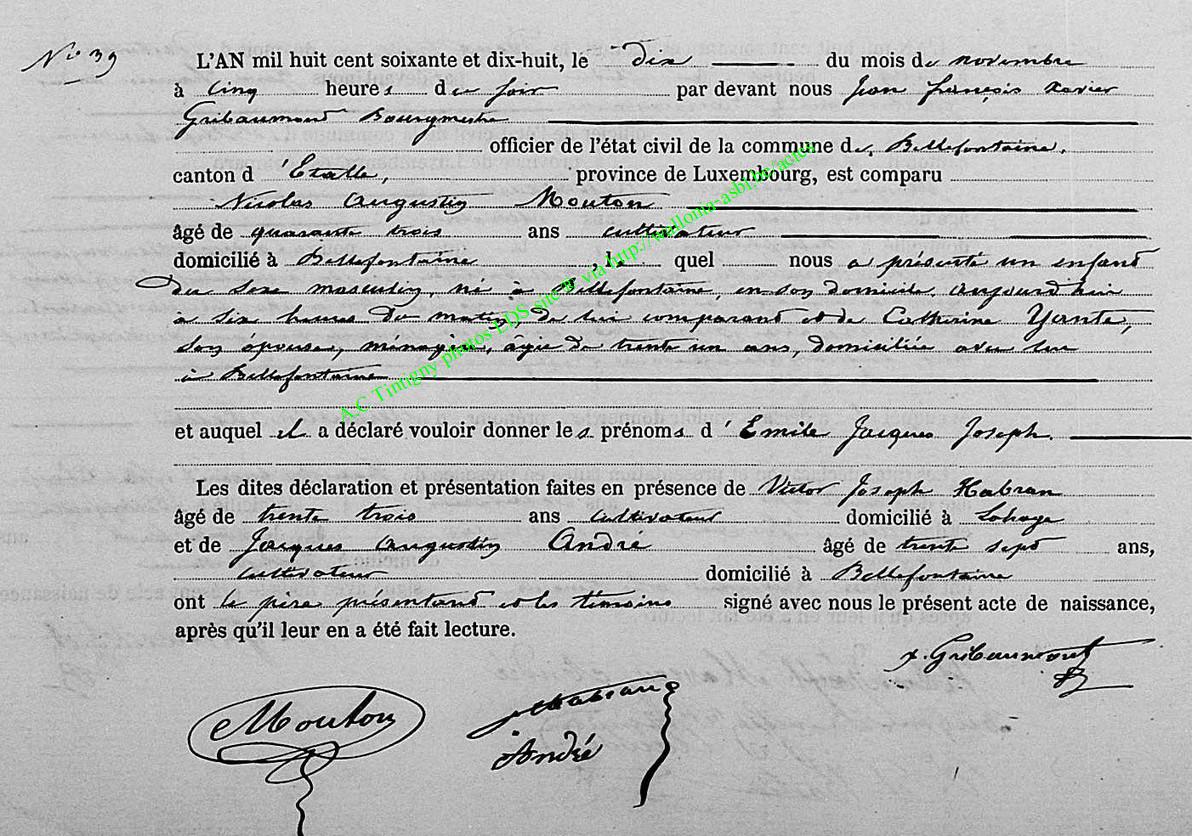 N° 39
L'AN mil huit cent soixante et dix-huit, le dix du mois de novembre
à cinq heures du soir par devant nous Jean françois xavier
Gribaumont Bourgmestre
officier de l'état civil de la commune de Bellefontaine,
canton d'Etalle, province de Luxembourg, est comparu
Nicolas Augustin Mouton
âgé de quarante trois ans cultivateur
domicilié à Bellefontaine, le quel nous a présenté un enfant
du sexe masculin, né à Bellefontaine, en son domicile, aujourd'hui
à six heures du matin, de lui comparant et de Catherine Yante,
son épouse, ménagère, agée de trente un ans, domiciliée avec lui
à Bellefontaine
et auquel il a déclaré vouloir donner les prénoms d'Emile Jacques Joseph.
Les dites déclaration et présentation faites en présence de Victor Joseph Habran
âgé de trente trois ans cultivateur domicilié à Lahage
et de Jacques Augustin André âgé de trente sept ans,
cultivateur domicilié à Bellefontaine
ont le père présentant et les témoins signé avec nous le présent acte de naissance,
après qu'il leur en a été fait lecture.
x. Gribaumont
B
Mouton
Habran
André
A.C Tintigny photos LDS site & via http://wallonia-asbl.be/actes